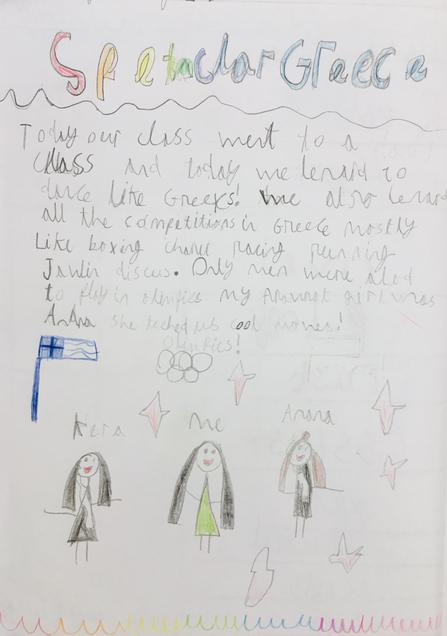 Spetaclar Greece
Today our class went to a
class and today we lernd to
dance like Greeks! we also lernd
all the competitions in Greece mostly
like boxing chariot racing running
Javlin discus. Only men were alod
to play in olimpics my favourit girl was
Anana she teched us cool moves!
Olimpics!
Kera Me Anana